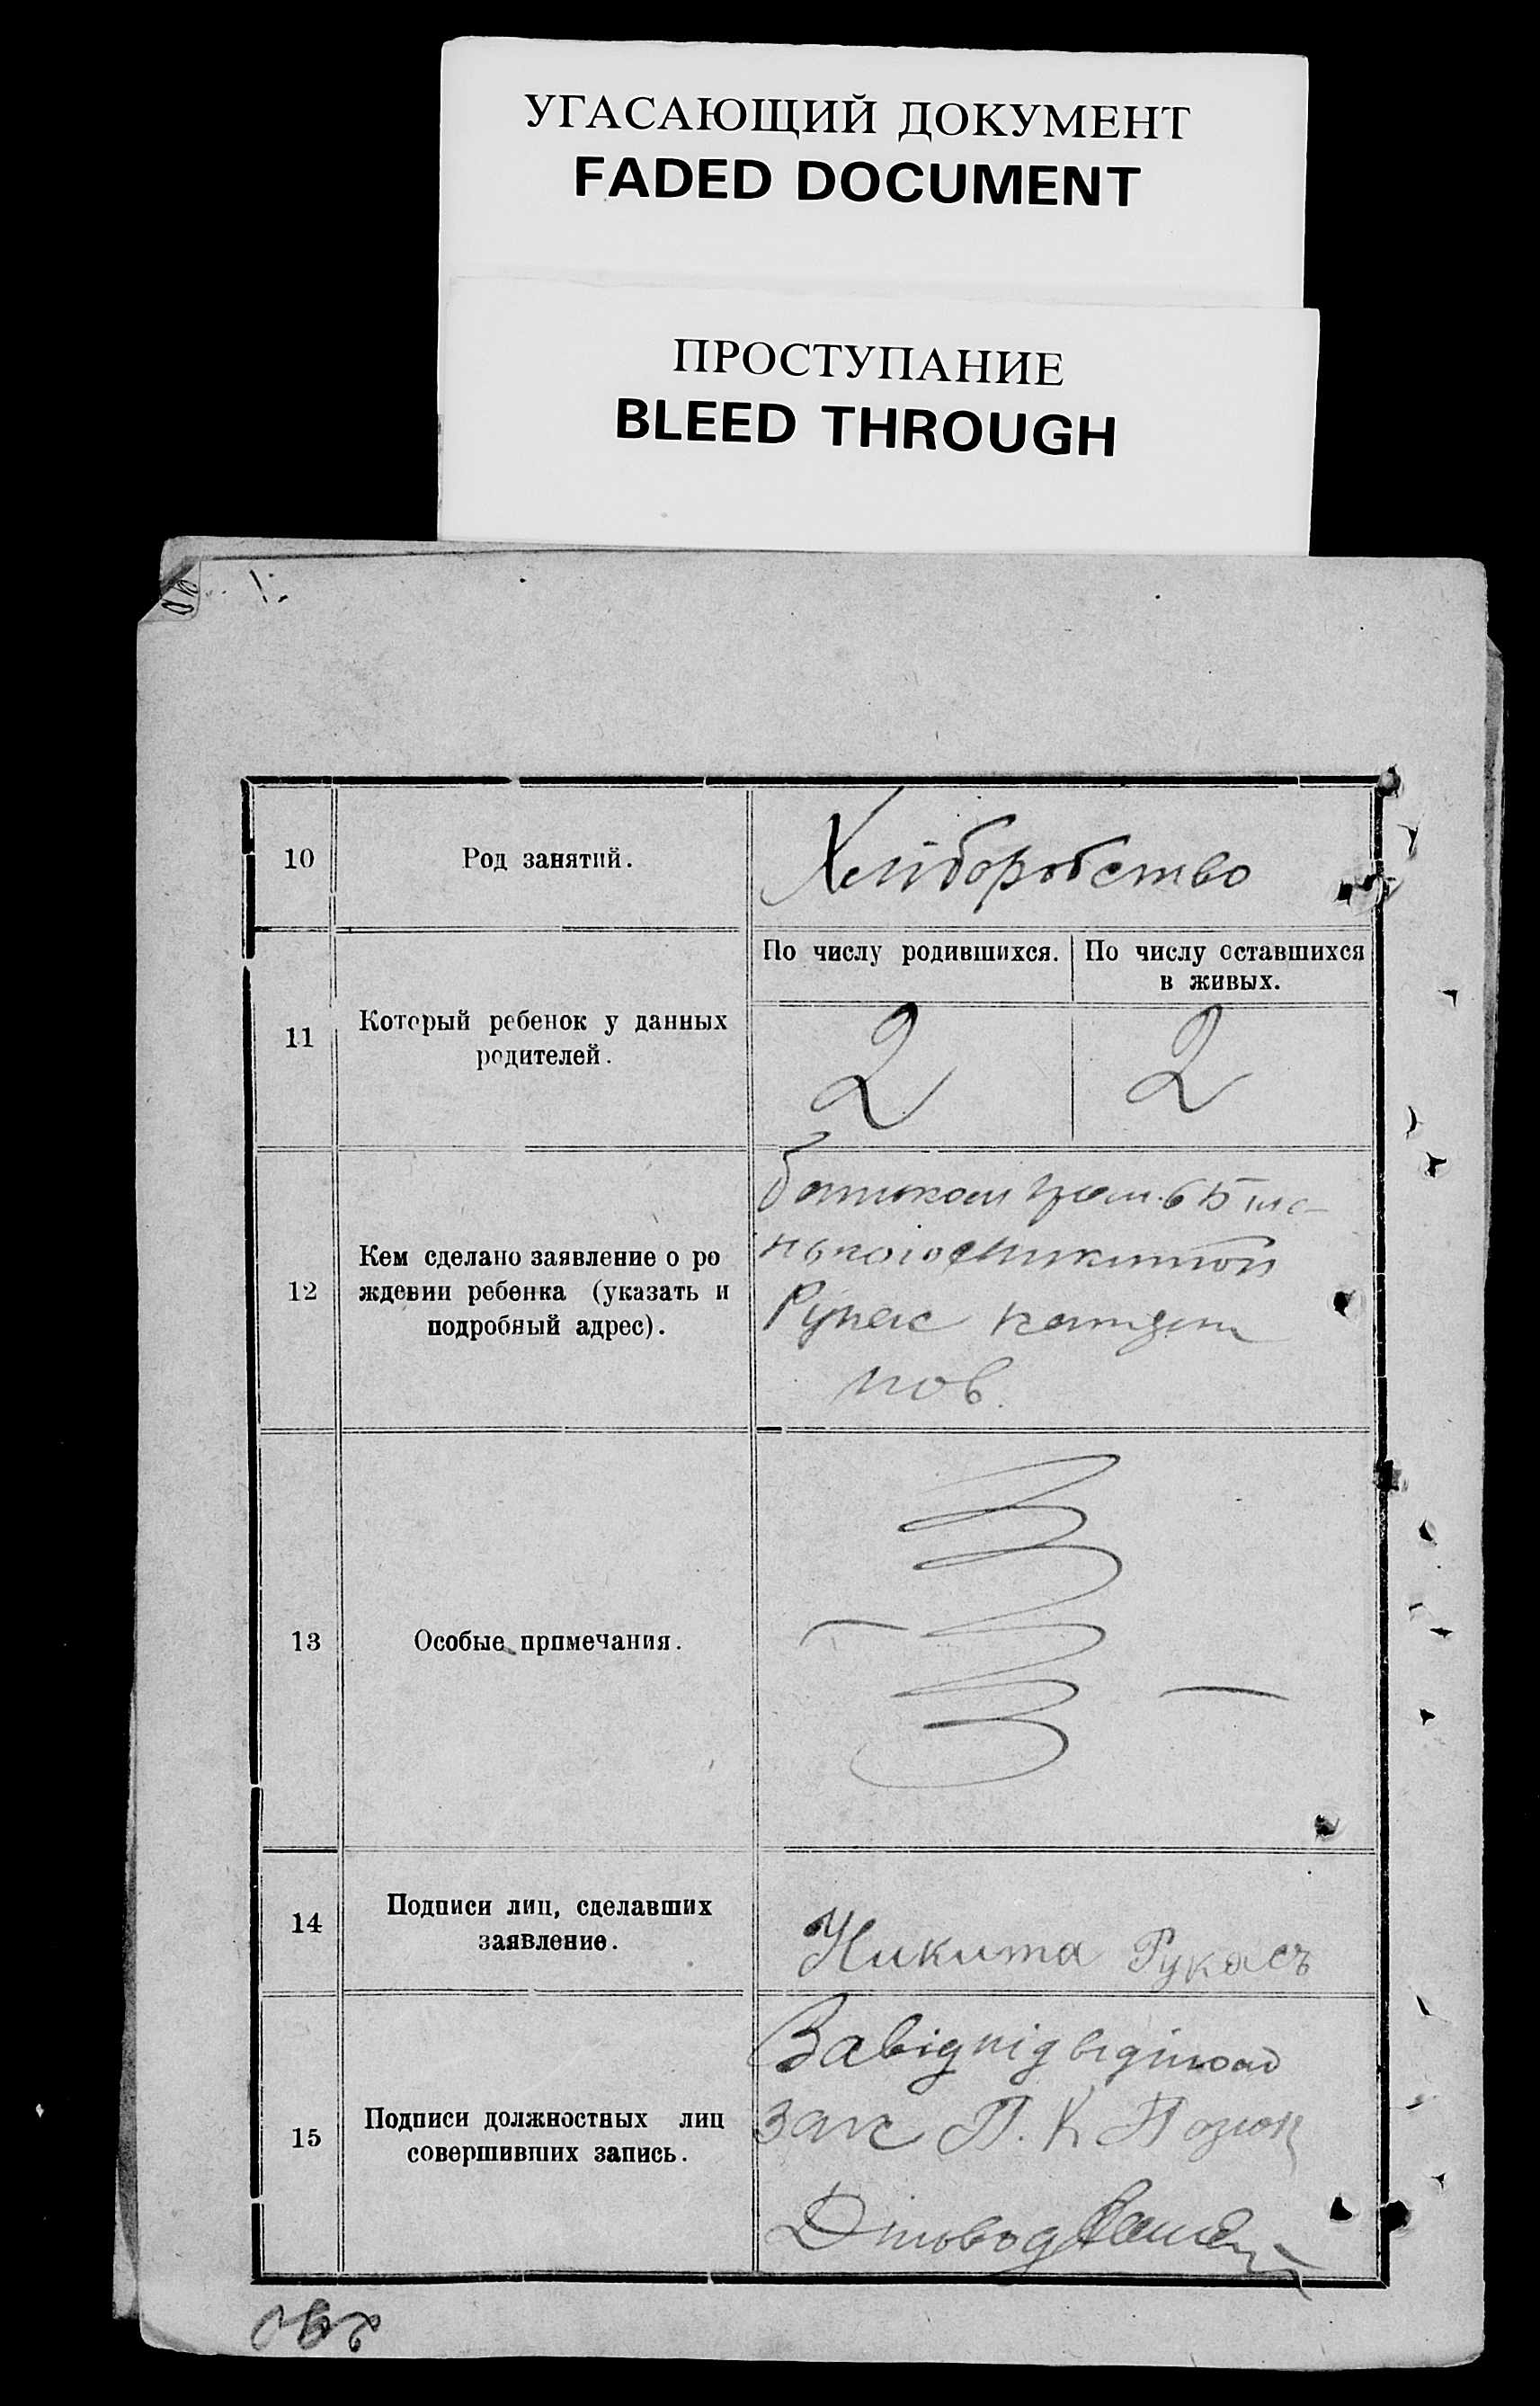 УГАСАЮЩИЙ ДОКУМЕНТ
FADED DOCUMENT
ПРОСТУПАНИЕ
BLEED THROUGH
10 Род занятий. Хліборобство
11 Который ребенок у данных родителей.
По числу родившихся. По числу оставшихся
в живых.
2 2
12 Кем сделано заявление о ро
ждении ребенка (указать и
подробный адрес).
батьком
Рукас
пов.
13 Особые примечания.
14 Подписи лиц, сделавших
заявление.
Никита Рукасъ
15 Подписи должностных лиц
совершивших запись.
Завід підвідділом
загс П. К
Діловод